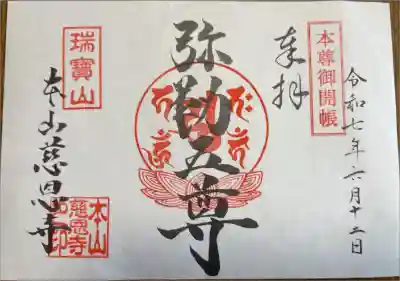 本尊御開帳
令和七年六月十二日
奉拝
弥勒五尊
瑞寶山
本山慈恩寺
本山
慈恩寺